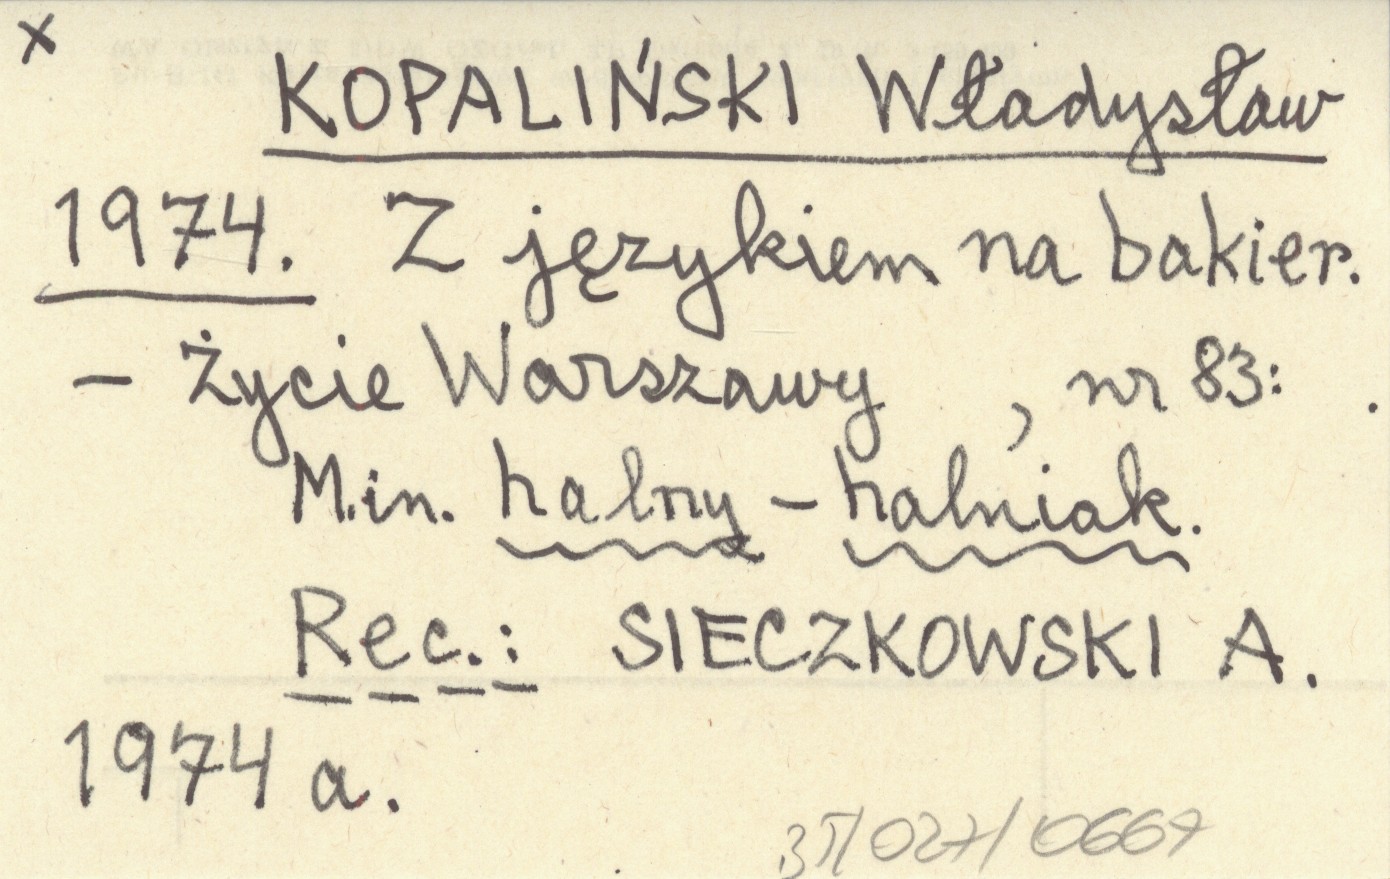 x
KOPALIŃSKI Władysław
1974. Z językiem na bakier.
– Życie Warszawy , nr 83: .
M.in. halny – halniak.
Rec.: SIECZKOWSKI A.
1974 a.
/027/0667